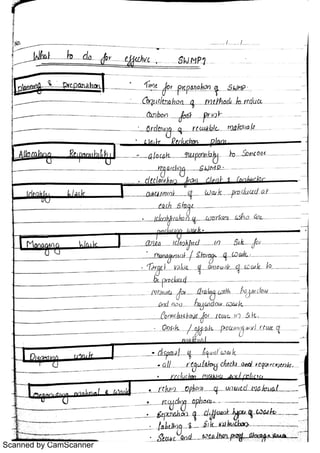 What to do for effective SWMP?
Planning & Preparation
• Time for preparation of SWMP
Consideration of methods to reduce
Carbon foot print
• Ordering of recyclable materials
• Waste Reduction plans
Allocating Responsibility
• allocate responsibility to someone
regarding SWMP
• declaration from client & contractor
Identify Waste
assessment of Waste produced at
each stage
• identification of workers who are
producing waste
Managing Waste
area identified in Site for
management / Storage of waste
• Target value of amount of waste to
be produced
for dealing with hazardous
and non hazardous waste
for reuse in site
• Onsite / offsite processing and reuse of
material
Disposing waste
• disposal of liquid waste
• all regulatory checks and requirements
• reduction
material & waste
• return options of unused material
• recycling options
• Separation of different types of waste
• labelling & site instructions
• Secure and weather proof storage
Scanned by CamScanner